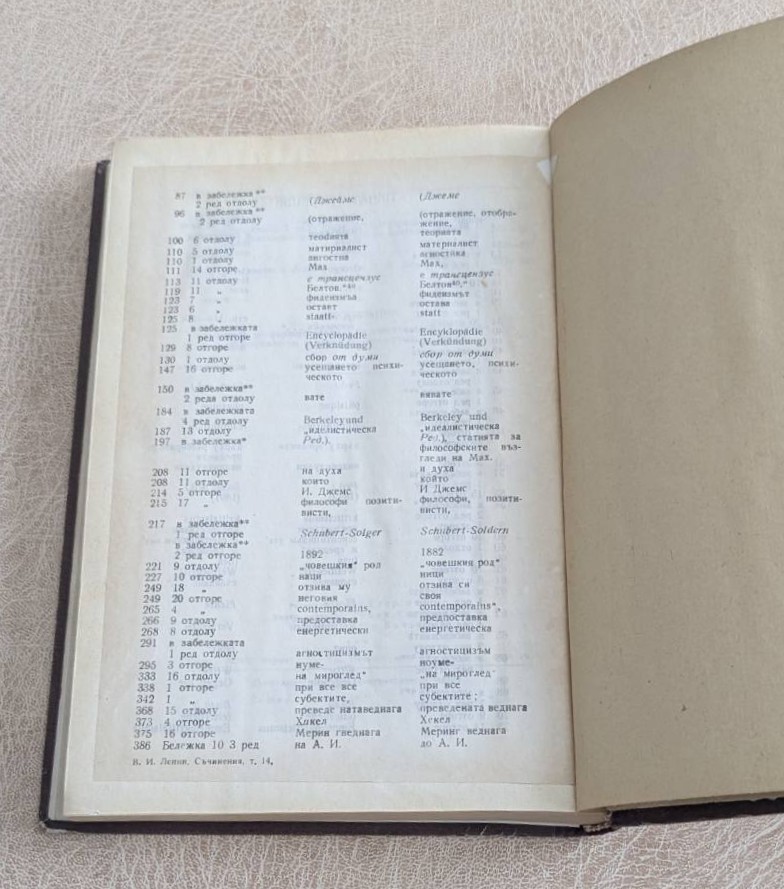 87 в забележка**
2 ред отдолу (Джеймс (Джемс
96 в забележка**
2 ред отдолу (отражение, (отражение, отобра-
жение,
100 6 отдолу теодията теорията
110 5 отдолу матириалист материалист
110 1 отдолу агностик
111 14 отгоре Мах Мах,
113 11 отдолу е трансцензус е трансцензус
119 11 „ Белтов."⁴⁰ Белтов⁴⁰."
123 7 „ фидеизмъа фидеизмът
123 6 „ остает остава
125 8 „ staatt statt
125 в забележката
1 ред отгоре Encyclopädie Encyklopädie
129 8 отгоре (Verknüdung) (Verkündung)
130 1 отдолу сбор от думи сбор от думи
147 16 отгоре усещането психи- усещането, психи-
ческото ческото
150 в забележка**
2 реда отдолу вате вивате
184 в забележката
4 ред отдолу Berkeleyund Berkeley und
187 13 отдолу „иделистическа „идеалистическа
197 в забележка* Ред.). Ред.), статията за
философските въз-
гледи на Мах.
208 11 отгоре на духа и духа
208 11 отдолу които който
214 5 отгоре И. Джемс И Джемс
215 17 „ философи позити- философи, позити-
висти, висти,
217 в забележка**
1 ред отгоре Schubert-Solger Schubert-Soldern
в забележка**
2 ред отгоре 1892 1882
221 9 отдолу „човешкия" род „човешкия род"
227 10 отгоре наци ници
249 18 „ отзива му отзива си
249 20 отгоре неговия своя
265 4 „ contemporains, contemporains",
266 9 отдолу предоставка предпоставка
268 8 отдолу енергетически енергетическа
291 в забележката
1 ред отдолу агностицизмът агностицизъм
295 3 отгоре нуме- ноуме-
333 16 отдолу на мироглед" „на мироглед"
338 1 отгоре при все все при все
342 1 „ субектите, субектите;
368 15 отдолу преведе натаведнага преведената веднага
373 4 отгоре Хикел Хекел
375 16 отгоре Мерин гведнага Меринг веднага
386 Бележка 10 3 ред на А. И. до А. И.
В. И. Ленин, Съчинения, т. 14,